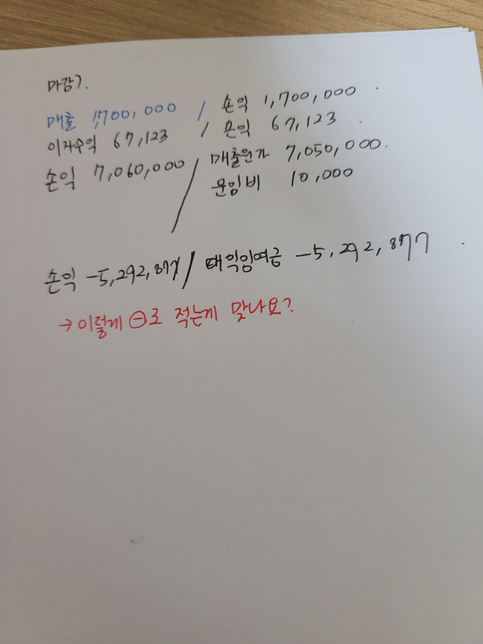 마감).
매출 1,700,000 / 손익 1,700,000 .
이자수익 67,123 / 손익 67,123
손익 7,060,000 / 매출원가 7,050,000.
운임비 10,000
손익 -5,292,877 / 미처분이익잉여금 -5,292,877 .
→ 이렇게 ⊖로 적는게 맞나요?